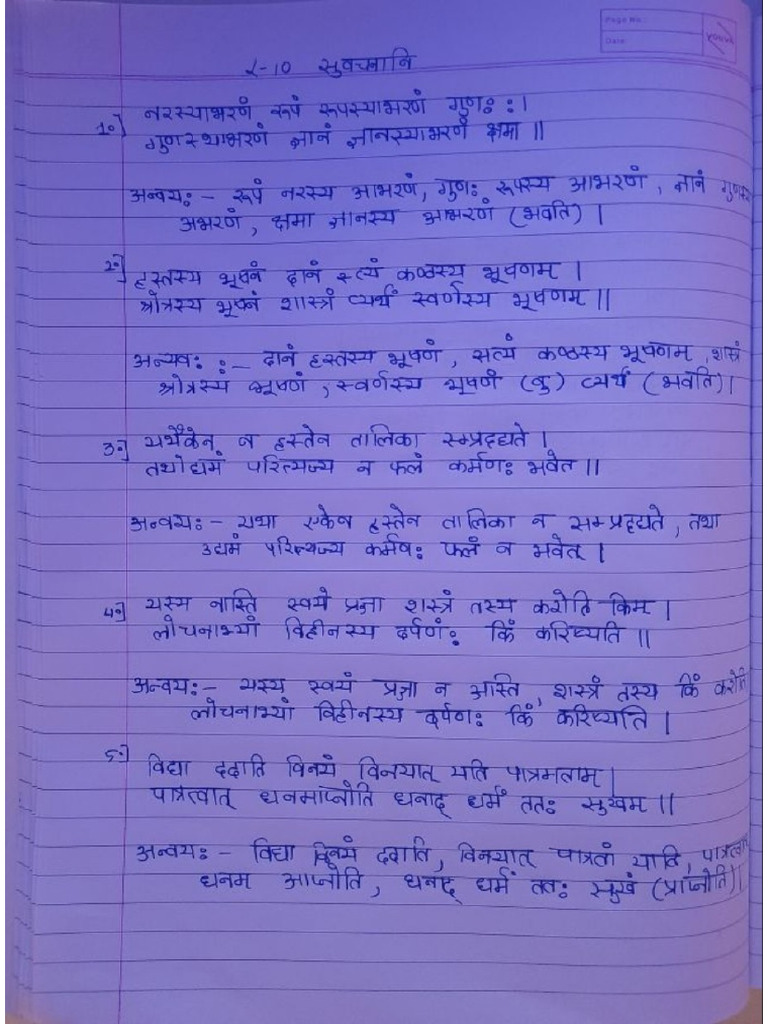 Page No.
Date
L-10 सुवचनानि
1.) नरस्याभरणं रूपं रूपस्याभरणं गुणः : ।
गुणस्याभरणं ज्ञानं ज्ञानस्याभरणं क्षमा ॥
अन्वयः - रूपं नरस्य आभरणं, गुणः रूपस्य आभरणं, ज्ञानं
अभरणं, क्षमा ज्ञानस्य आभरणं (भवति) ।
2.) हस्तस्य भूषनं दानं सत्यं कण्ठस्य भूषणम् ।
श्रोत्रस्य भूषनं शास्त्रं व्यर्थं स्वर्णस्य भूषणम ॥
अन्यवः : - दानं हस्तस्य भूषणं, सत्यं कण्ठस्य भूषणम, शास्त्रं
श्रोत्रस्य भूषणं, स्वर्णस्य भूषणं (तु) व्यर्थं (भवति) ।
3.) यथैकेन न हस्तेन तालिका सम्प्रद्द्यते ।
तथोद्यमं परित्यज्य न फलं कर्मणः भवेत ॥
अन्वयः - यथा एकेन हस्तेन तालिका न सम्प्रद्द्यते, तथा
उद्यमं परित्यज्य कर्मणः फलं न भवेत् ।
4.) यस्य नास्ति स्वयं प्रज्ञा शस्त्रं तस्य करोति किम ।
लोचनाभ्यां विहीनस्य दर्पणंः किं करिष्यति ॥
अन्वयः - यस्य स्वयं प्रज्ञा न अस्ति, शास्त्रं तस्य किं करोति
लोचनाभ्यां विहीनस्य दर्पणः किं करिष्यति ।
5.) विद्या ददाति विनयं विनयात् यति पात्रमताम् ।
पात्रत्वात् धनमाप्नोति धनाद् धर्मं ततः सुखम ॥
अन्वयः - विद्या विनयं ददाति, विनयात् पात्रतां याति,
धनम आप्नोति, धनाद् धर्मं ततः सुखं (प्राप्नोति) ।